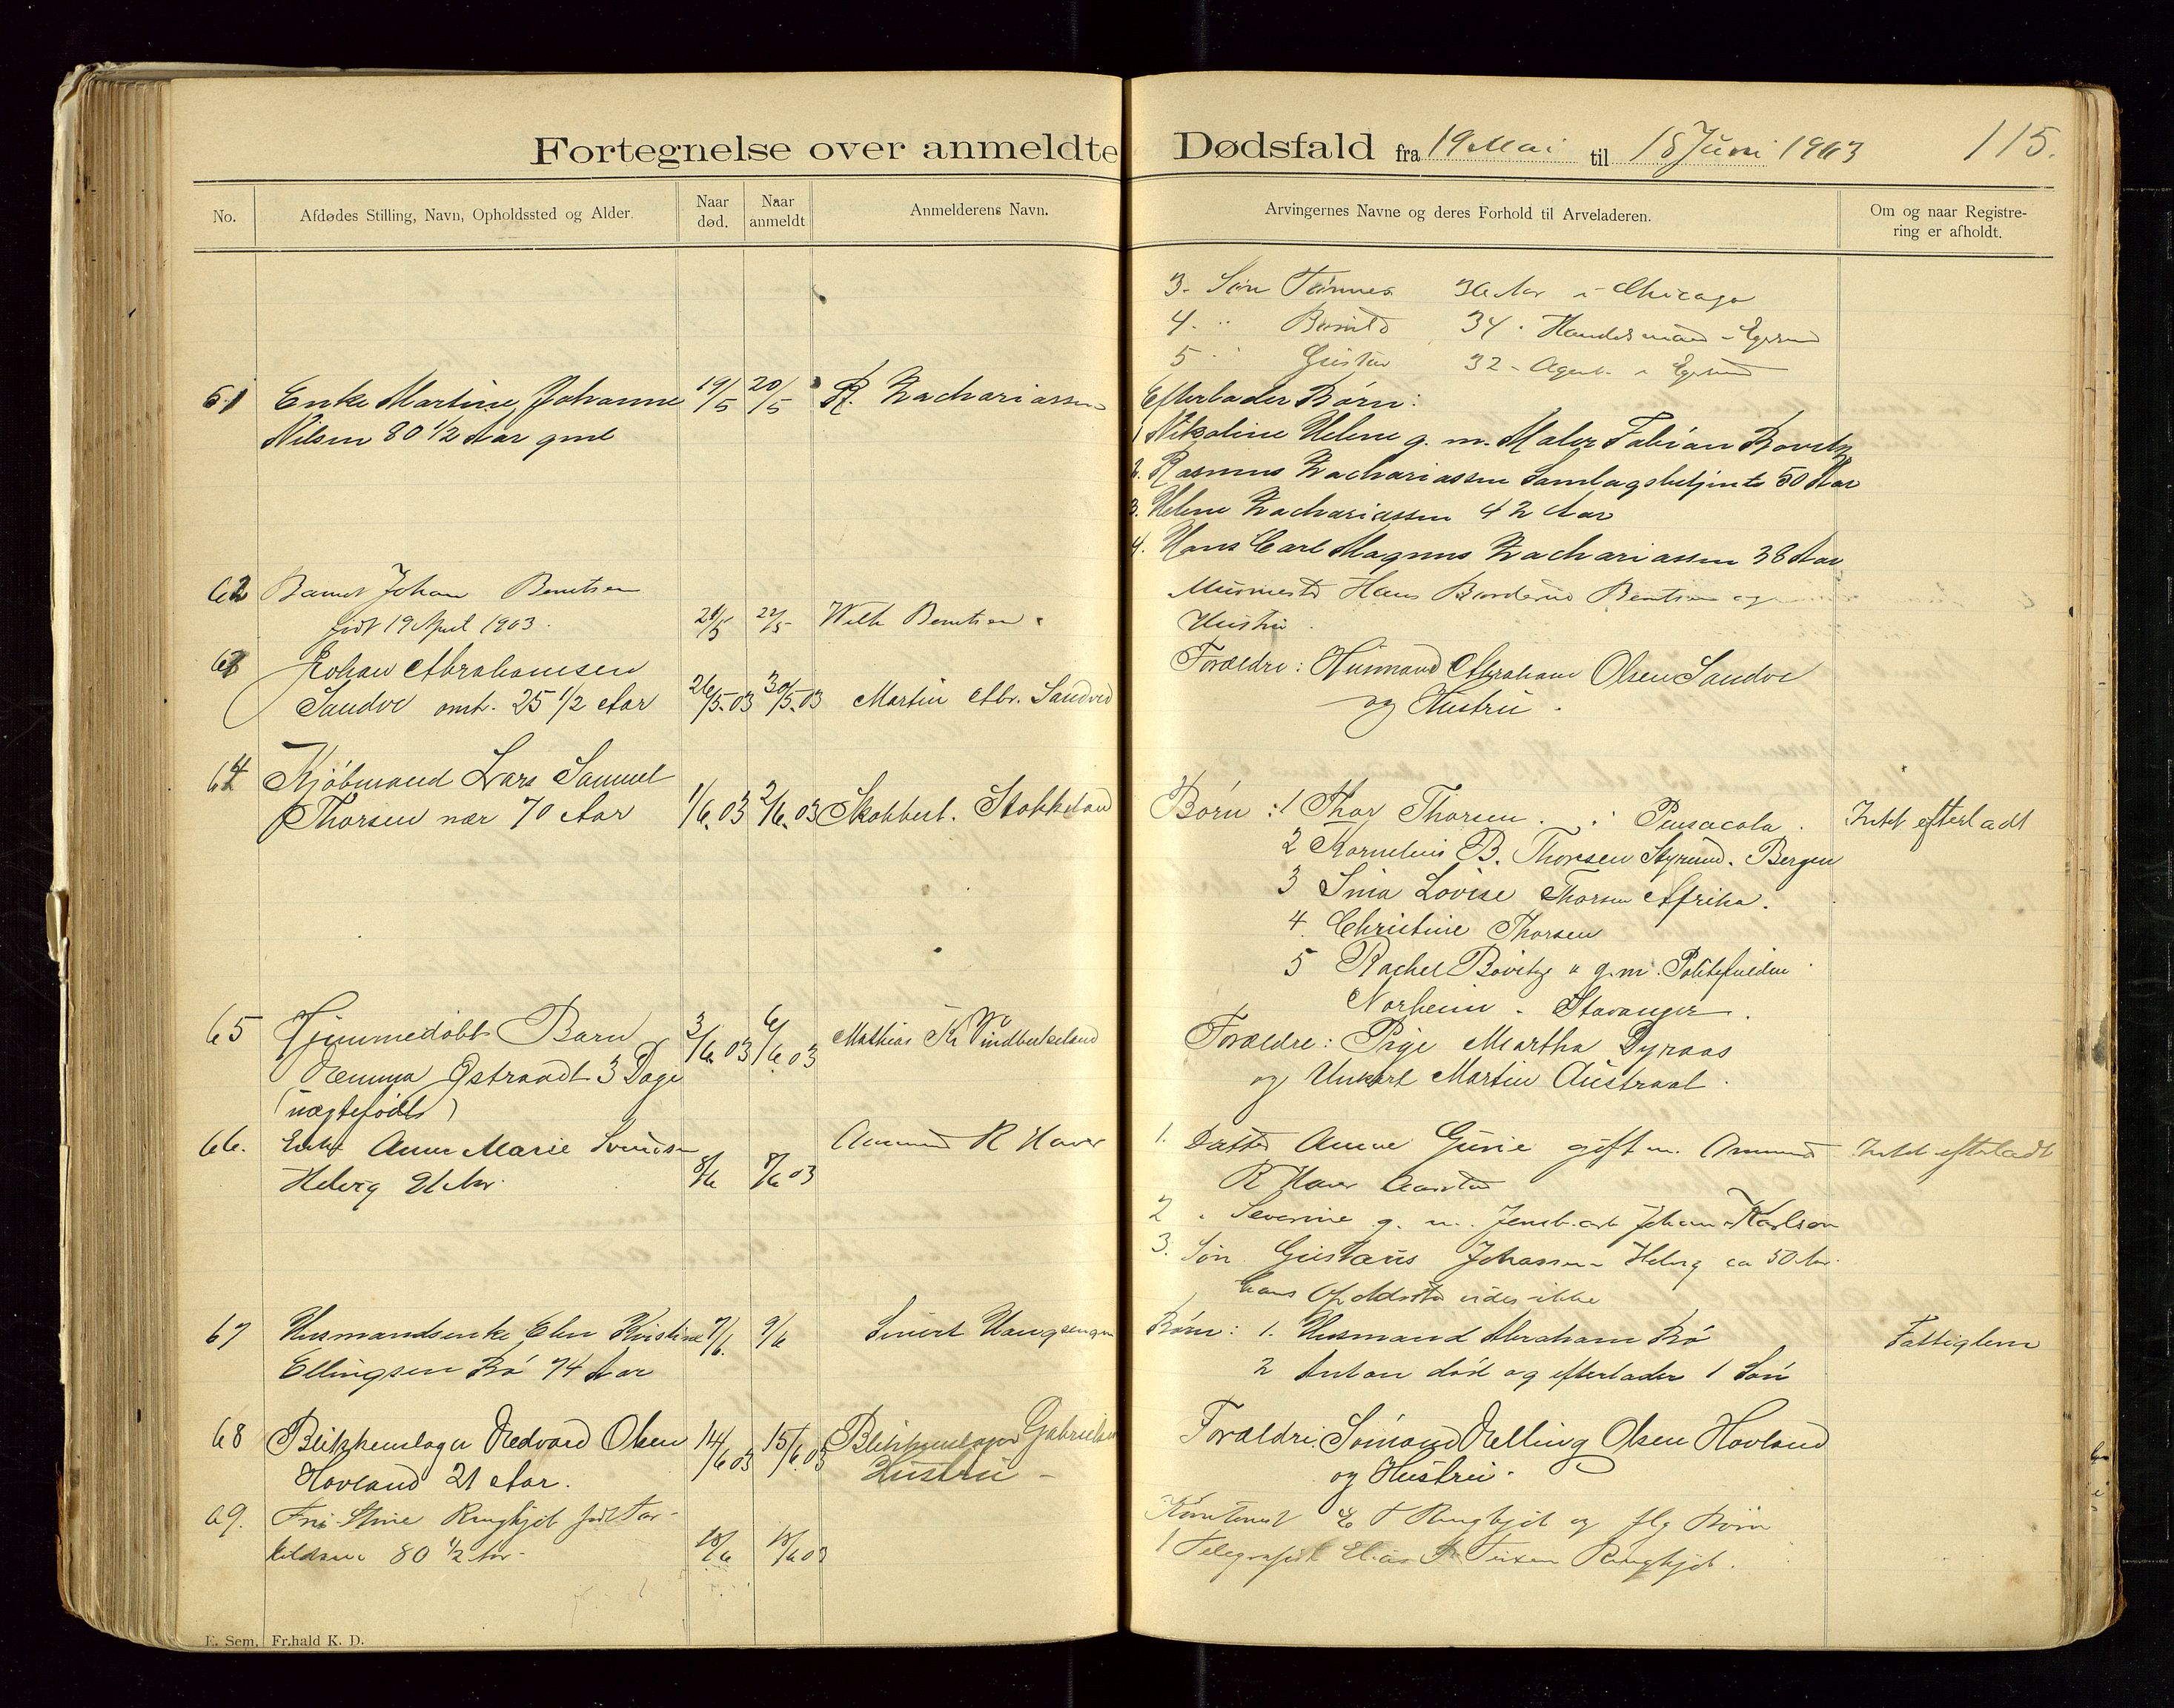 Fortegnelse over anmeldte Dødsfald fra 19 Mai til 18 Juni 1903 115.
No. Afdødes Stilling, Navn, Opholdssted og Alder. Naar død. Naar anmeldt Anmelderens Navn. Arvingernes Navne og deres Forhold til Arveladeren. Om og naar Registrering er afholdt.
3. Søn Tønnes 36 Aar i Chicago
4. " 34 " Handelsmand i Egersund
5 " Gustav 32 - Agent i Egersund
61 Enke Martine Johanne 19/5 20/5 R. Zachariassen Efterlader Børn:
Nilsen 80 1/2 Aar gml
1 Nikoline Helene g. m. Maler Fabian
2. Rasmus Zachariassen Samlagsbetjent 50 Aar
3. Helene Zachariassen 42 Aar
4. Hans Carl Magnus Zachariassen 38 Aar
62 Barnet Johan Berntsen Murmester Hans Berntsen og
født 19 April 1903. 21/5 22/5 Wilh Berntsen. Hustru.
63 Johan Abrahamsen Forældre: Husmand Abraham Olsen Sandve
Sandve omtr. 25 1/2 Aar 26/5.03 30/5.03 Martin Abr. Sandved og Hustru.
64 Kjøbmand Lars Samuel
Thorsen nær 70 Aar 1/6.03 2/6.03 Skobbert. Stokkeland Børn: 1 Thor Thorsen. i Pensacola. Intet efterladt
2 Kornelius B. Thorsen Styrmd. Bergen
3 Sina Lovise Thorsen Afrika.
4. Christine Thorsen
5 Rachel g. m.
Norheim - Stavanger.
65 Hjemmedøbt Barn 3/6 03 6/6 03 Mathias Kr Forældre: Pige Martha Dyraas
Østraadt 3 Dage og Unkarl Martin Austraat.
(uægtefødt)
66. Enke Anne Marie Svendsen Aamund R Haver 1. Datter Anne Gurie gift m. Amund Intet efterladt
Helvig Aar. 8/6 8/6 03 R Haver
2 " Severine g. m. Johan Karlsen
3. Søn Gustavus Johassen Helvig ca 50 Aar.
hans Opholdssted vides ikke
67 Husmandsenke Elen Kristine 7/6. 9/6 Sivert Børn: 1. Husmand Abraham Bø Fattiglem
Ellingsen Bø 74 Aar 2 Anton død og efterlader 1 Søn
68 Blikkenslager Edvard Olsen 14/6 03 15/6.03 Blikkenslager Gabrielsen Forældre: Sømand Elling Olsen Hovland
Hovland 21 Aar. Hustru - og Hustru.
69. Fru Stine født Tor- og flg Børn
kildsen 80 1/2 Aar - 18/6 18/6 03 1 Telegrafist Elias
E. Sem, Fr.hald K. D.